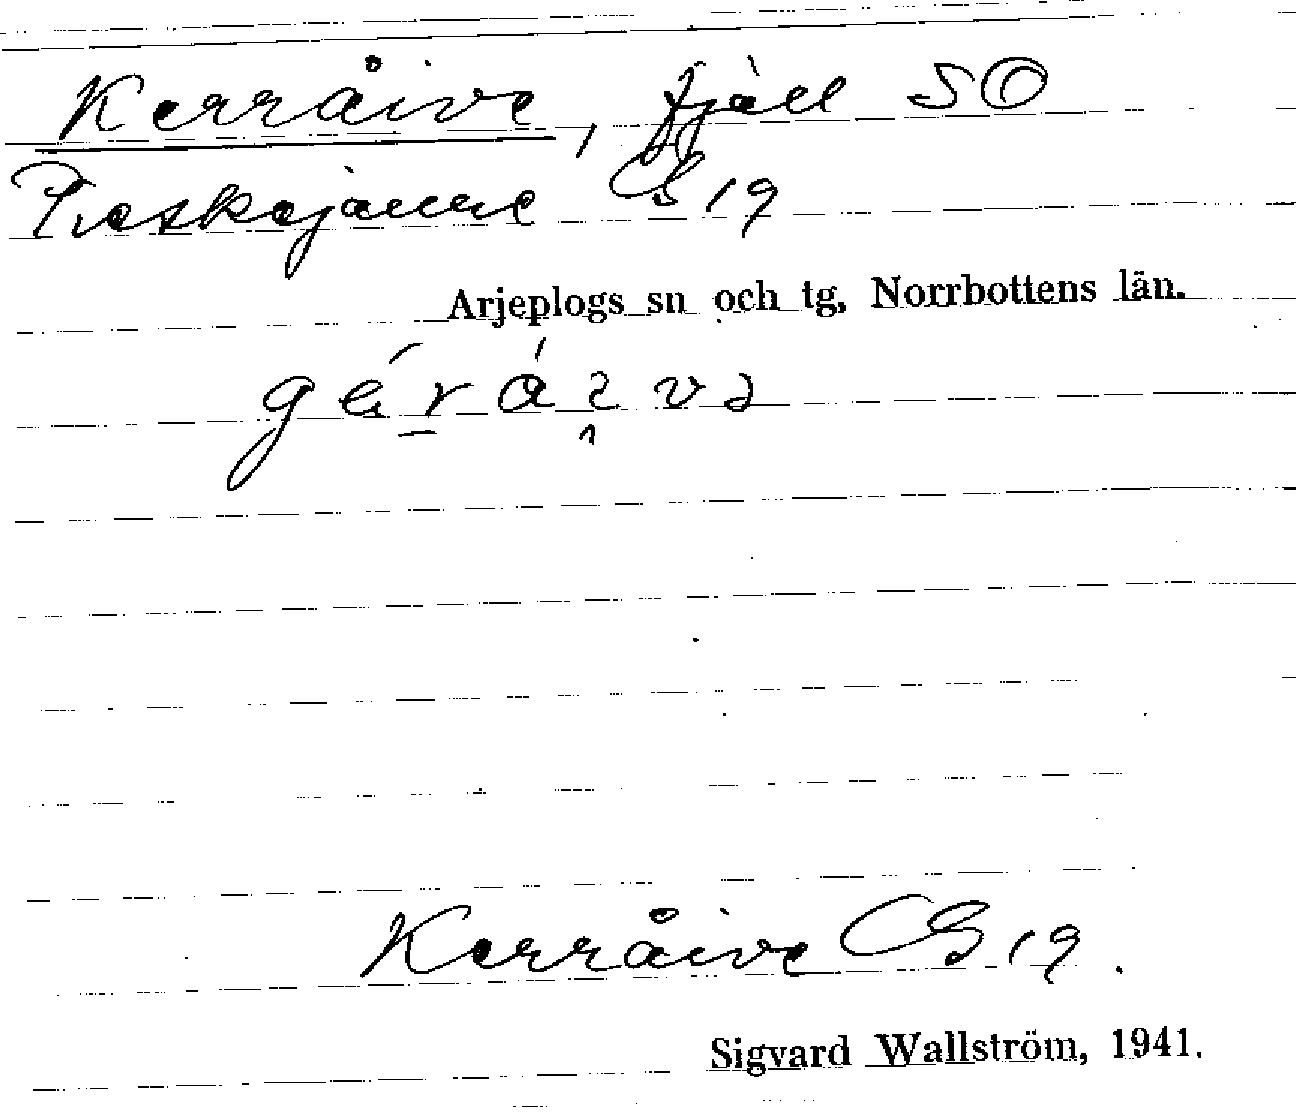 Kerråive, fjäll SO
Pieskejaure GS 19
Arjeplogs sn och tg, Norrbottens län.
Kerråive GS 19.
Sigvard Wallström, 1941.